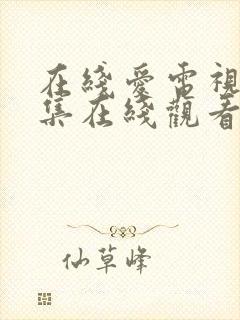 在綫愛電視
集在綫觀看
仙草峰